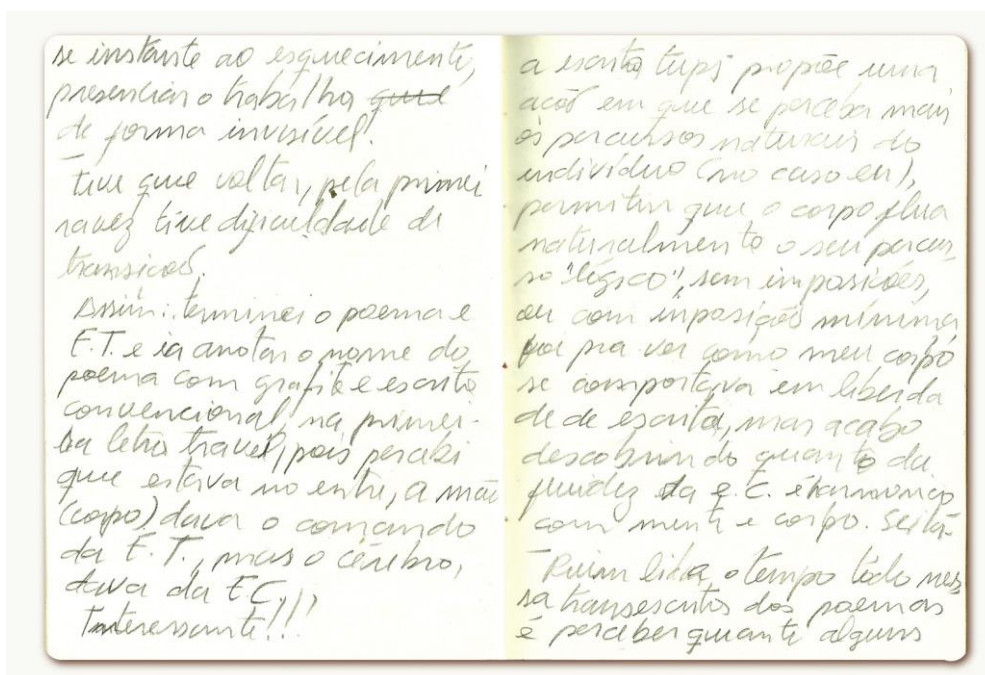 se instante ao esquecimento,
presenciar o trabalho que
de forma invisível.
Tive que voltar, pela primei
ra vez tive dificuldade de
transição.
Assim: terminei o poema e
E.T. e ia anotar o nome do
poema com grafite e escrita
convencional, na primei-
ra letra travei, pois percebi
que estava no entre, a mão
(corpo) dava o comando
da E.T., mas o cérebro,
dava da EC.
Interessante!!!
a escrita tupi propõe uma
ação em que se perceba mais
os percursos naturais do
indivíduo (no caso eu),
permitir que o corpo flua
naturalmente o seu percur
so "lógico", sem imposições,
ou com imposição mínima
foi pra ver como meu corpo
se comportava em liberda
de de escrita, mas acabo
descobrindo quanto da
fluidez da e.C. é harmônica
com mente e corpo. Será-
o tempo todo nes
sa transescrita dos poemas
é perceber quanto alguns